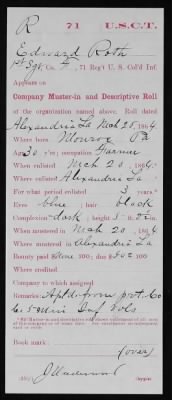 R 71 U.S.C.T.
Edward Roth
1st Sgt. Co. F, 71 Reg't U. S. Col'd Inf.
Appears on
Company Muster-in and Descriptive Roll
of the organization named above. Roll dated
Alexandria La Mch 20, 1864
Where born Monroe Pa
Age 30 y'rs; occupation Farmer
When enlisted Mch 20, 1864.
Where enlisted Alexandria La
For what period enlisted 3 years.*
Eyes blue; hair black
Complexion dark; height 5 ft. in.
When mustered in Mch 20, 1864
Where mustered in Alexandria La
Bounty paid $ 100; due $ 100
Where credited
Company to which assigned
Remarks: Apt'd from prvt. Co
C. 5 Min Inf Vols
Book mark:
(over)
J Underwood
Copyist.